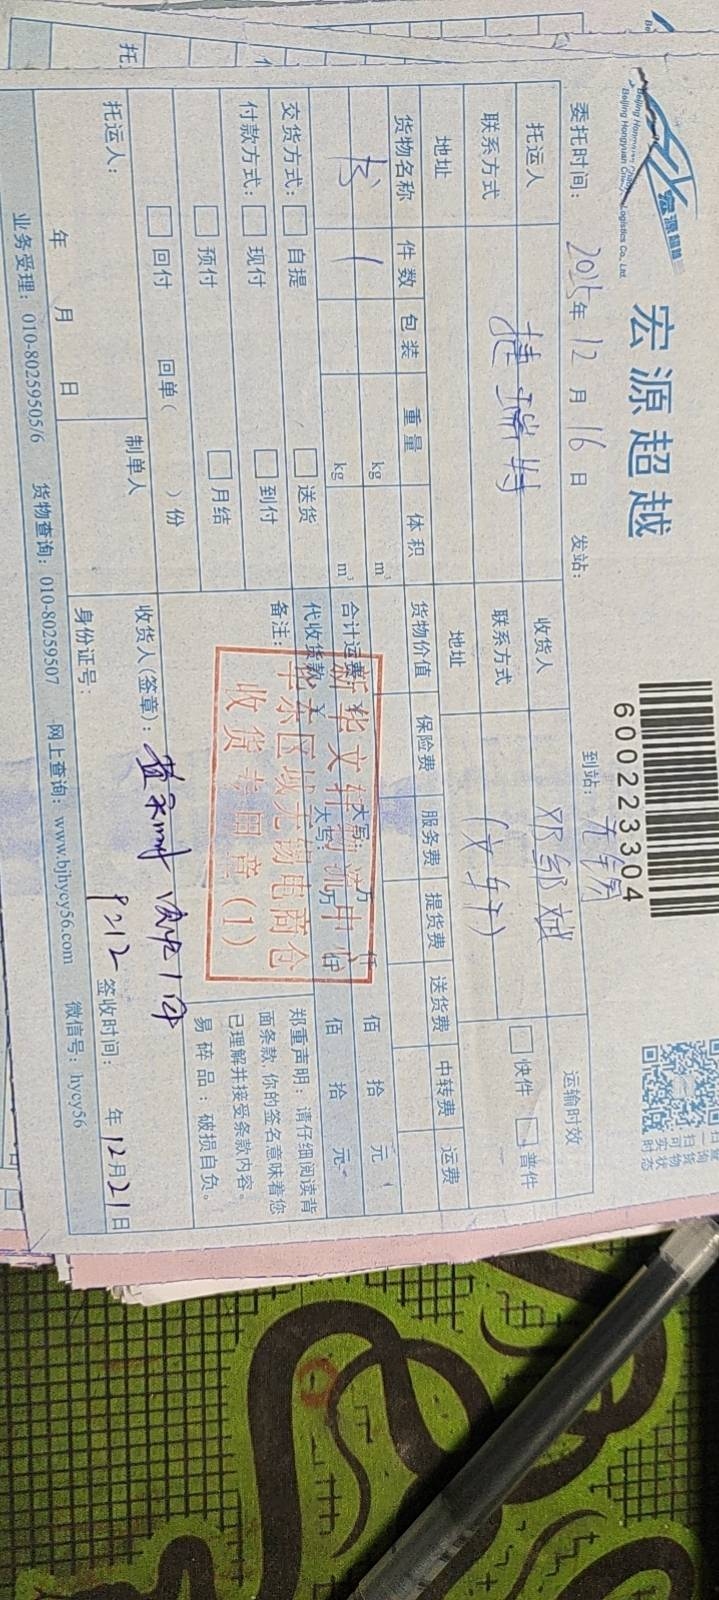 宏源超越
Beijing Hongyuan Chaoyue Logistics Co., Ltd.
600223304
委托时间: 2025年12月16日 发站: 到站: 无锡
运输时效
托运人 捷瑞特 收货人 邓邹斌
□快件 □普件
联系方式 联系方式 (文轩)
地址 地址
货物名称 件数 包装 重量 体积 货物价值 保险费 服务费 提货费 送货费 中转费 运费
书 1 kg m³
kg m³
合计运费 ¥ 大写: 万 仟 佰 拾 元
代收货款 ¥ 大写: 万 仟 佰 拾 元
交货方式: □自提 □送货
付款方式: □现付 □到付
□预付 □月结
□回付 回单( )份
备注:
新华文轩 中心
华东区域无锡电商仓
收货专用章(1)
郑重声明: 请仔细阅读背
面条款,你的签名意味着您
已理解并接受条款内容。
易碎品: 破损自负。
托运人: 制单人 收货人(签章):
年 月 日 身份证号: 签收时间: 年12月21日
业务受理: 010-80259505/6 货物查询: 010-80259507 网上查询: www.bjhycy56.com 微信号: hycy56